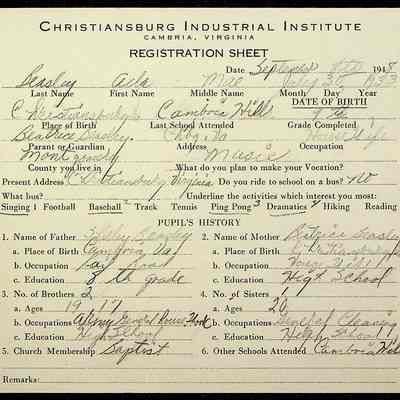 CHRISTIANSBURG INDUSTRIAL INSTITUTE
CAMBRIA, VIRGINIA
REGISTRATION SHEET
Date September 1948
Beasley Ada Mae July 30 1933
Last Name First Name Middle Name Month Day Year
DATE OF BIRTH
Christiansburg Cambria Hills
Place of Birth Last School Attended Grade Completed
Beatrice Beasley Housewife
Parent or Guardian Address Occupation
Montgomery Music
County you live in What do you plan to make your Vocation?
Present Address Christiansburg Virginia Do you ride to school on a bus? no
What bus? Underline the activities which interest you most:
Singing 1 Football Baseball Track Tennis Ping Pong 3 Dramatics Hiking Reading
PUPIL'S HISTORY
1. Name of Father Beasley 2. Name of Mother Beatrice Beasley
a. Place of Birth Cambria Va a. Place of Birth Christiansburg
b. Occupation b. Occupation House Wife
c. Education 8th grade c. Education High School
3. No. of Brothers 2 4. No. of Sisters
a. Ages 19 17 a. Ages 20
b. Occupations Army General House Work b. Occupations General Cleaning
c. Education High School c. Education High School
5. Church Membership Baptist 6. Other Schools Attended Cambria
Remarks: